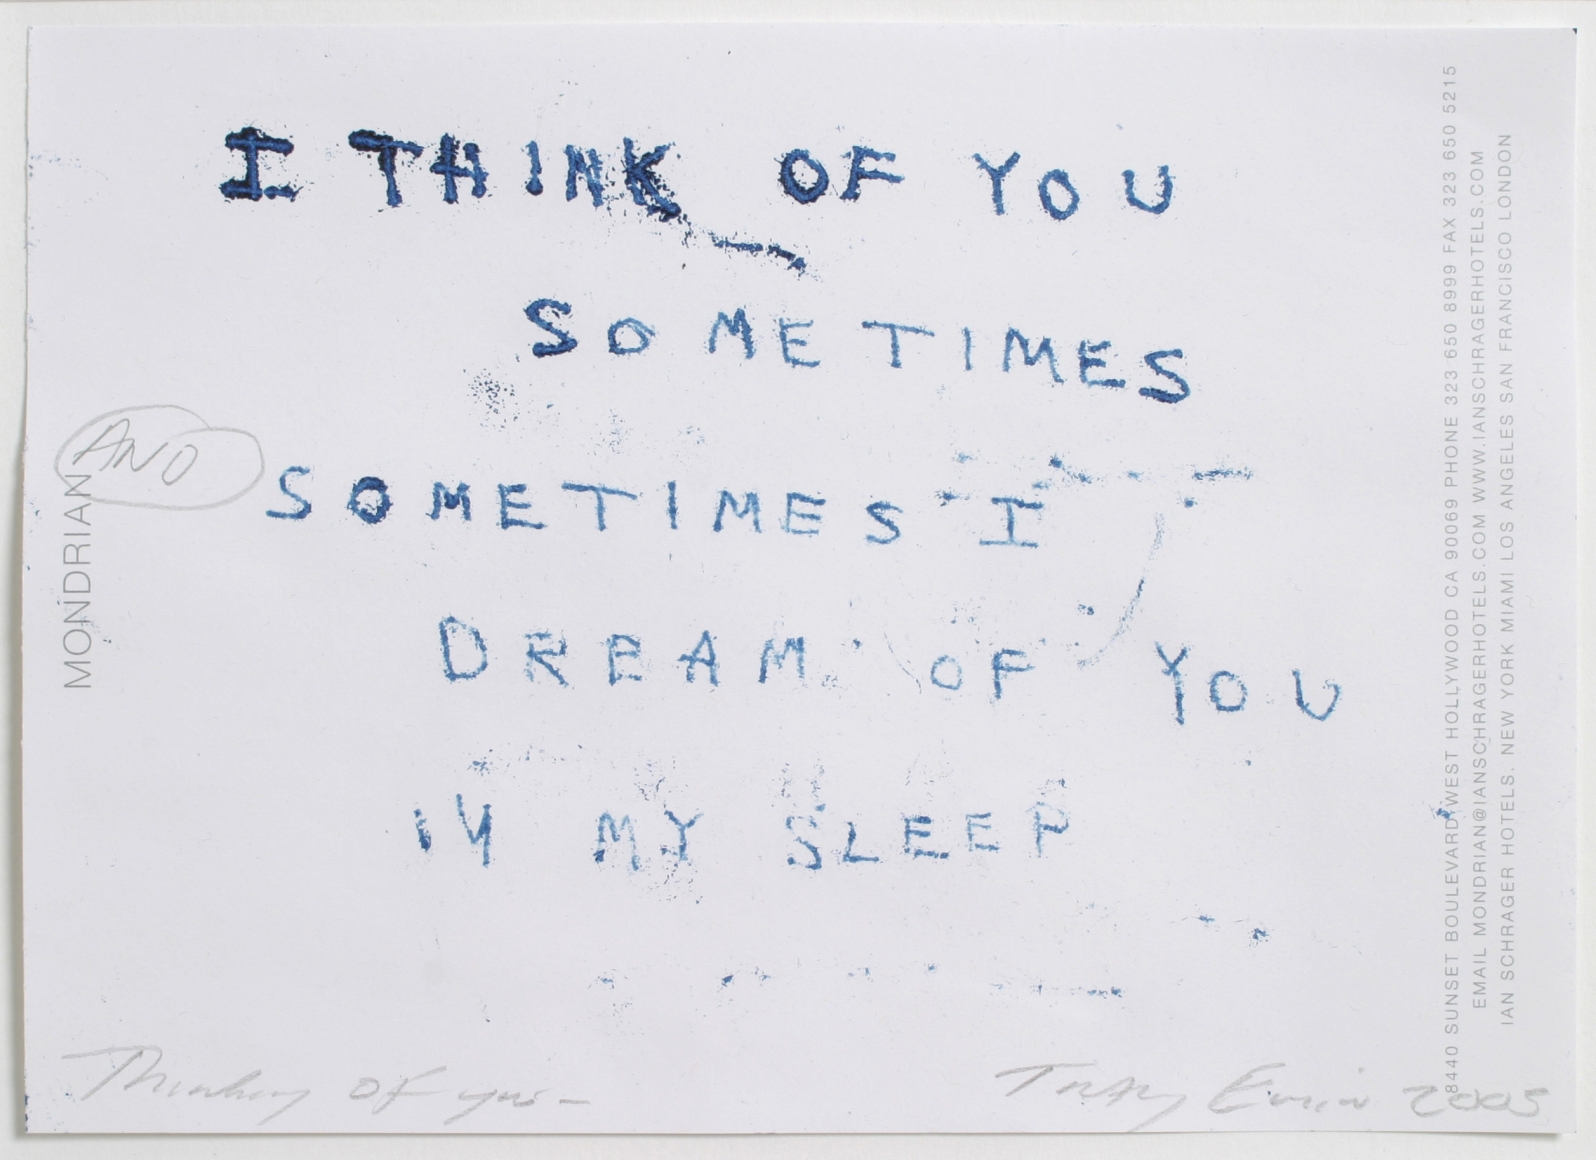 I THINK OF YOU
SOMETIMES
AND
SOMETIMES I
DREAM OF YOU
IN MY SLEEP
Thinking of you -
Tracey Emin 2005
MONDRIAN
8440 SUNSET BOULEVARD WEST HOLLYWOOD CA 90069 PHONE 323 650 8999 FAX 323 650 5215
EMAIL MONDRIAN@IANSCHRAGERHOTELS.COM WWW.IANSCHRAGERHOTELS.COM
IAN SCHRAGER HOTELS. NEW YORK MIAMI LOS ANGELES SAN FRANCISCO LONDON